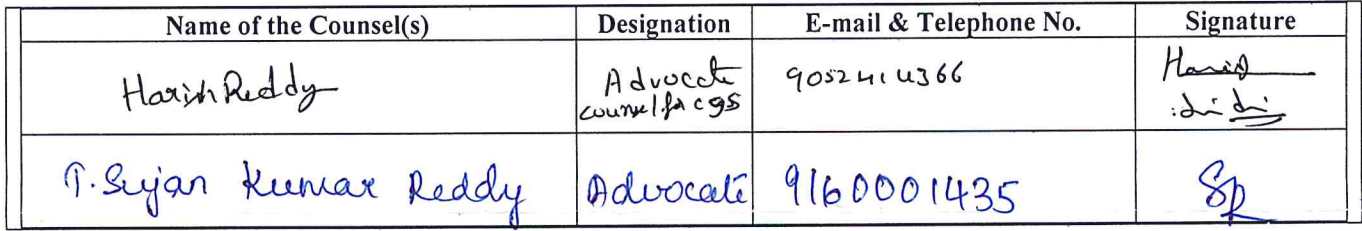 Name of the Counsel(s) Designation E-mail & Telephone No. Signature
Harish Reddy Advocate 9052414366
counsel for cgs
T. Sujan Kumar Reddy Advocate 9160001435